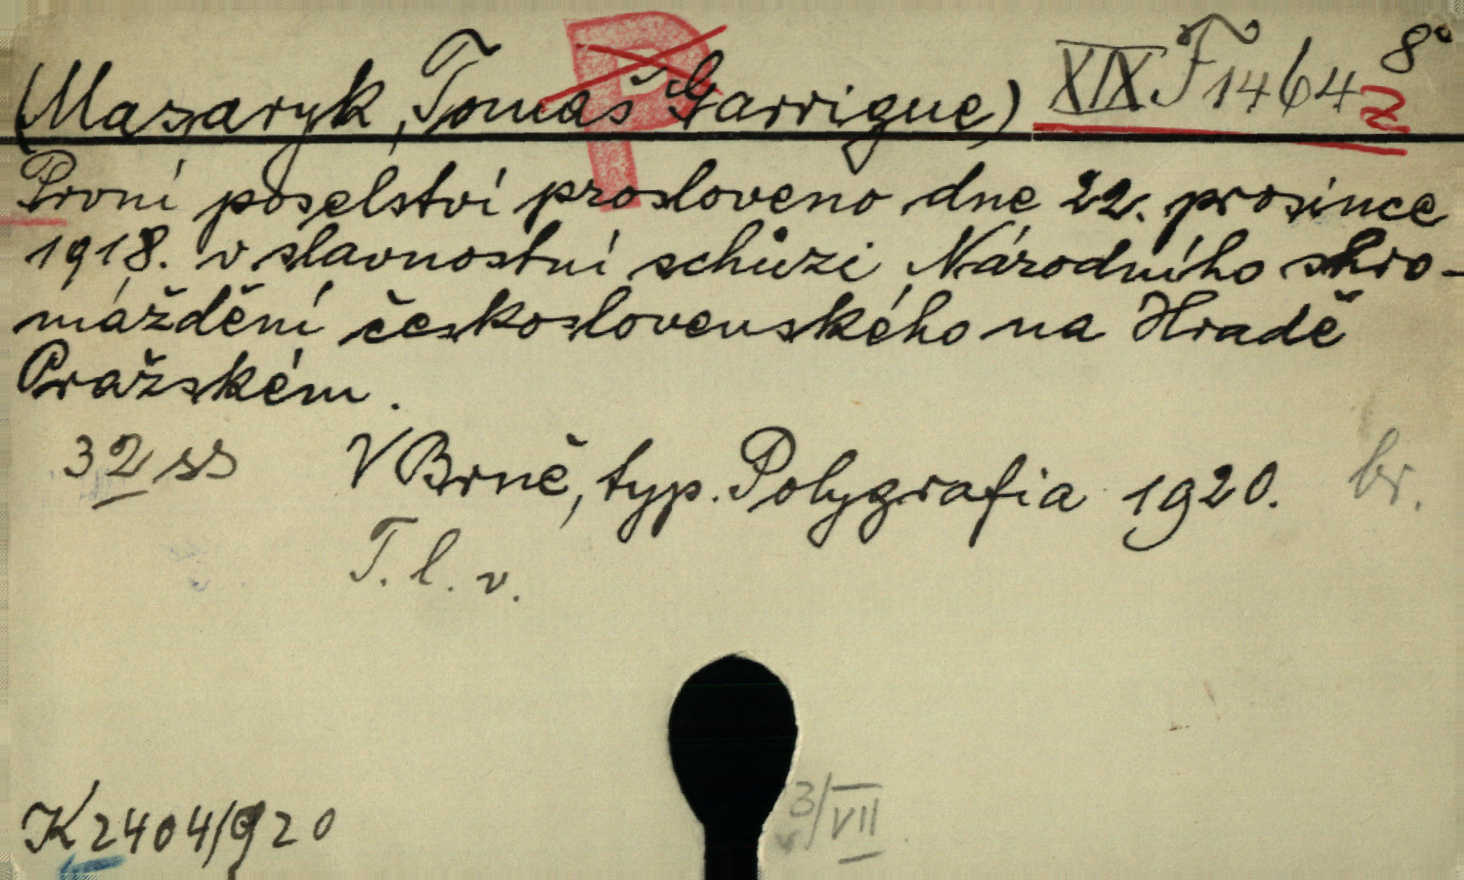 (Masaryk, Tomáš Garrigue) XIX F 1464 8°
P
z
První poselství prosloveno dne 22. prosince
1918. v slavnostní schůzi Národního shro-
máždění československého na Hradě
Pražském.
32 ss V Brně, typ. Polygrafia 1920. br.
T. l. v.
3/VII
K 2404/920